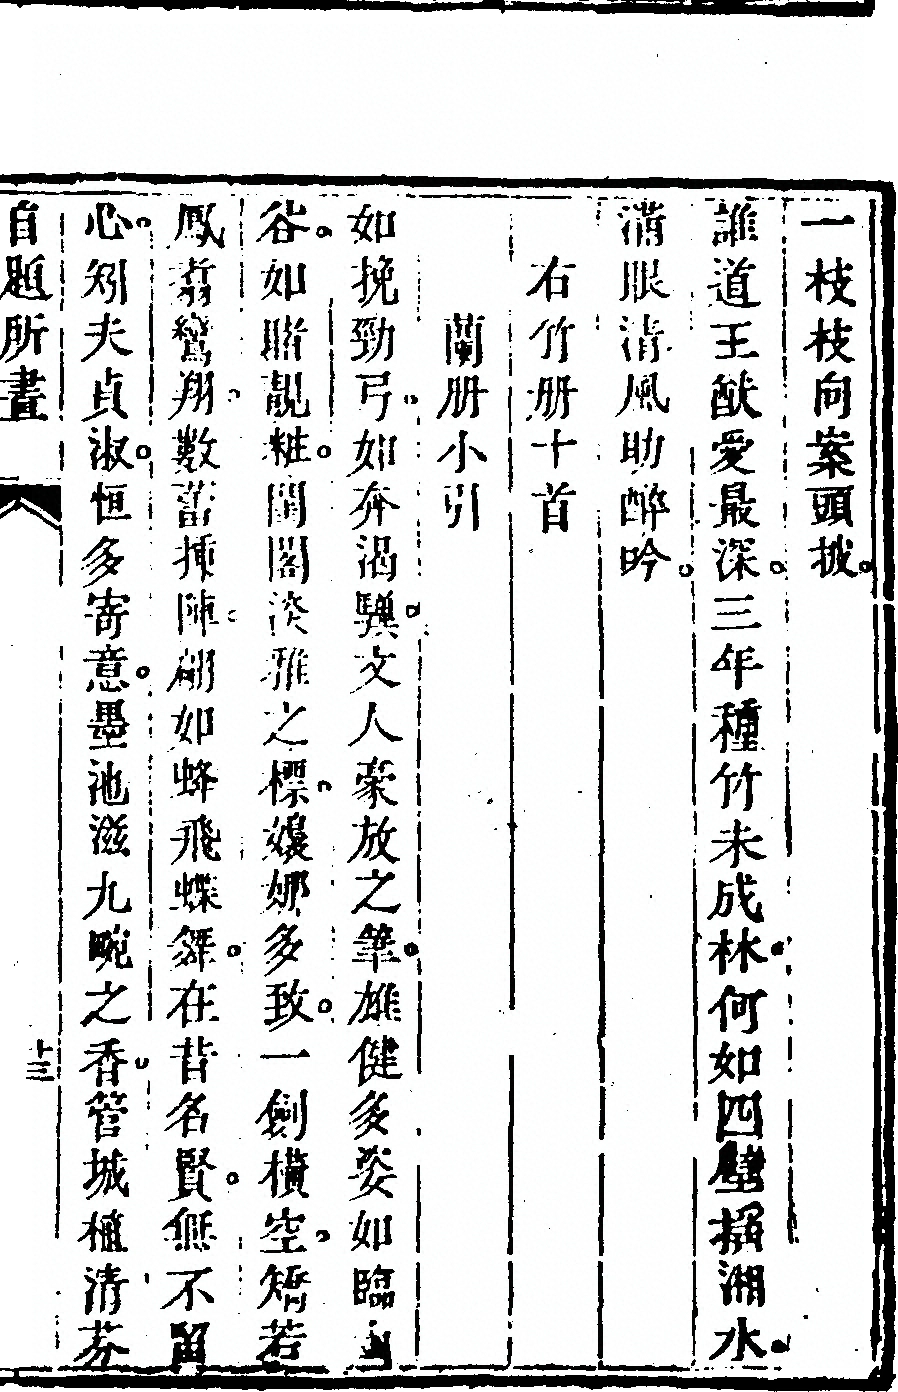 一枝枝向案頭披
誰道王猷愛最深三年種竹未成林何如四壁搨湘水
滿眼清風助醉吟
右竹册十首
蘭册小引
如挽勁弓如奔渴驥文人豪放之筆雄健多姿如臨幽
谷如睹靚粧閨閣淡雅之標嫚娜多致一劍橫空矯若
鳳翥鸞翔數蕾揷陣翩如蜂飛蝶舞在昔名賢無不留
心矧夫貞淑恒多寄意墨池滋九畹之香管城植清芬
自題所畫
十三